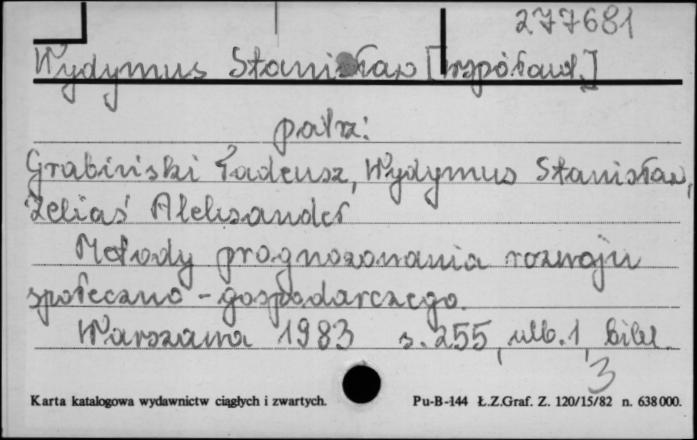 277681
Wydymus Stanisław [współaut.]
patrz:
Grabiński Tadeusz, Wydymus Stanisław,
Zeliaś Aleksander
Metody prognozowania rozwoju
społeczno-gospodarczego.
Warszawa 1983 s. 255, nlb. 1, bibl.
3
Karta katalogowa wydawnictw ciągłych i zwartych. Pu-B-144 Ł.Z.Graf. Z. 120/15/82 n. 638000.